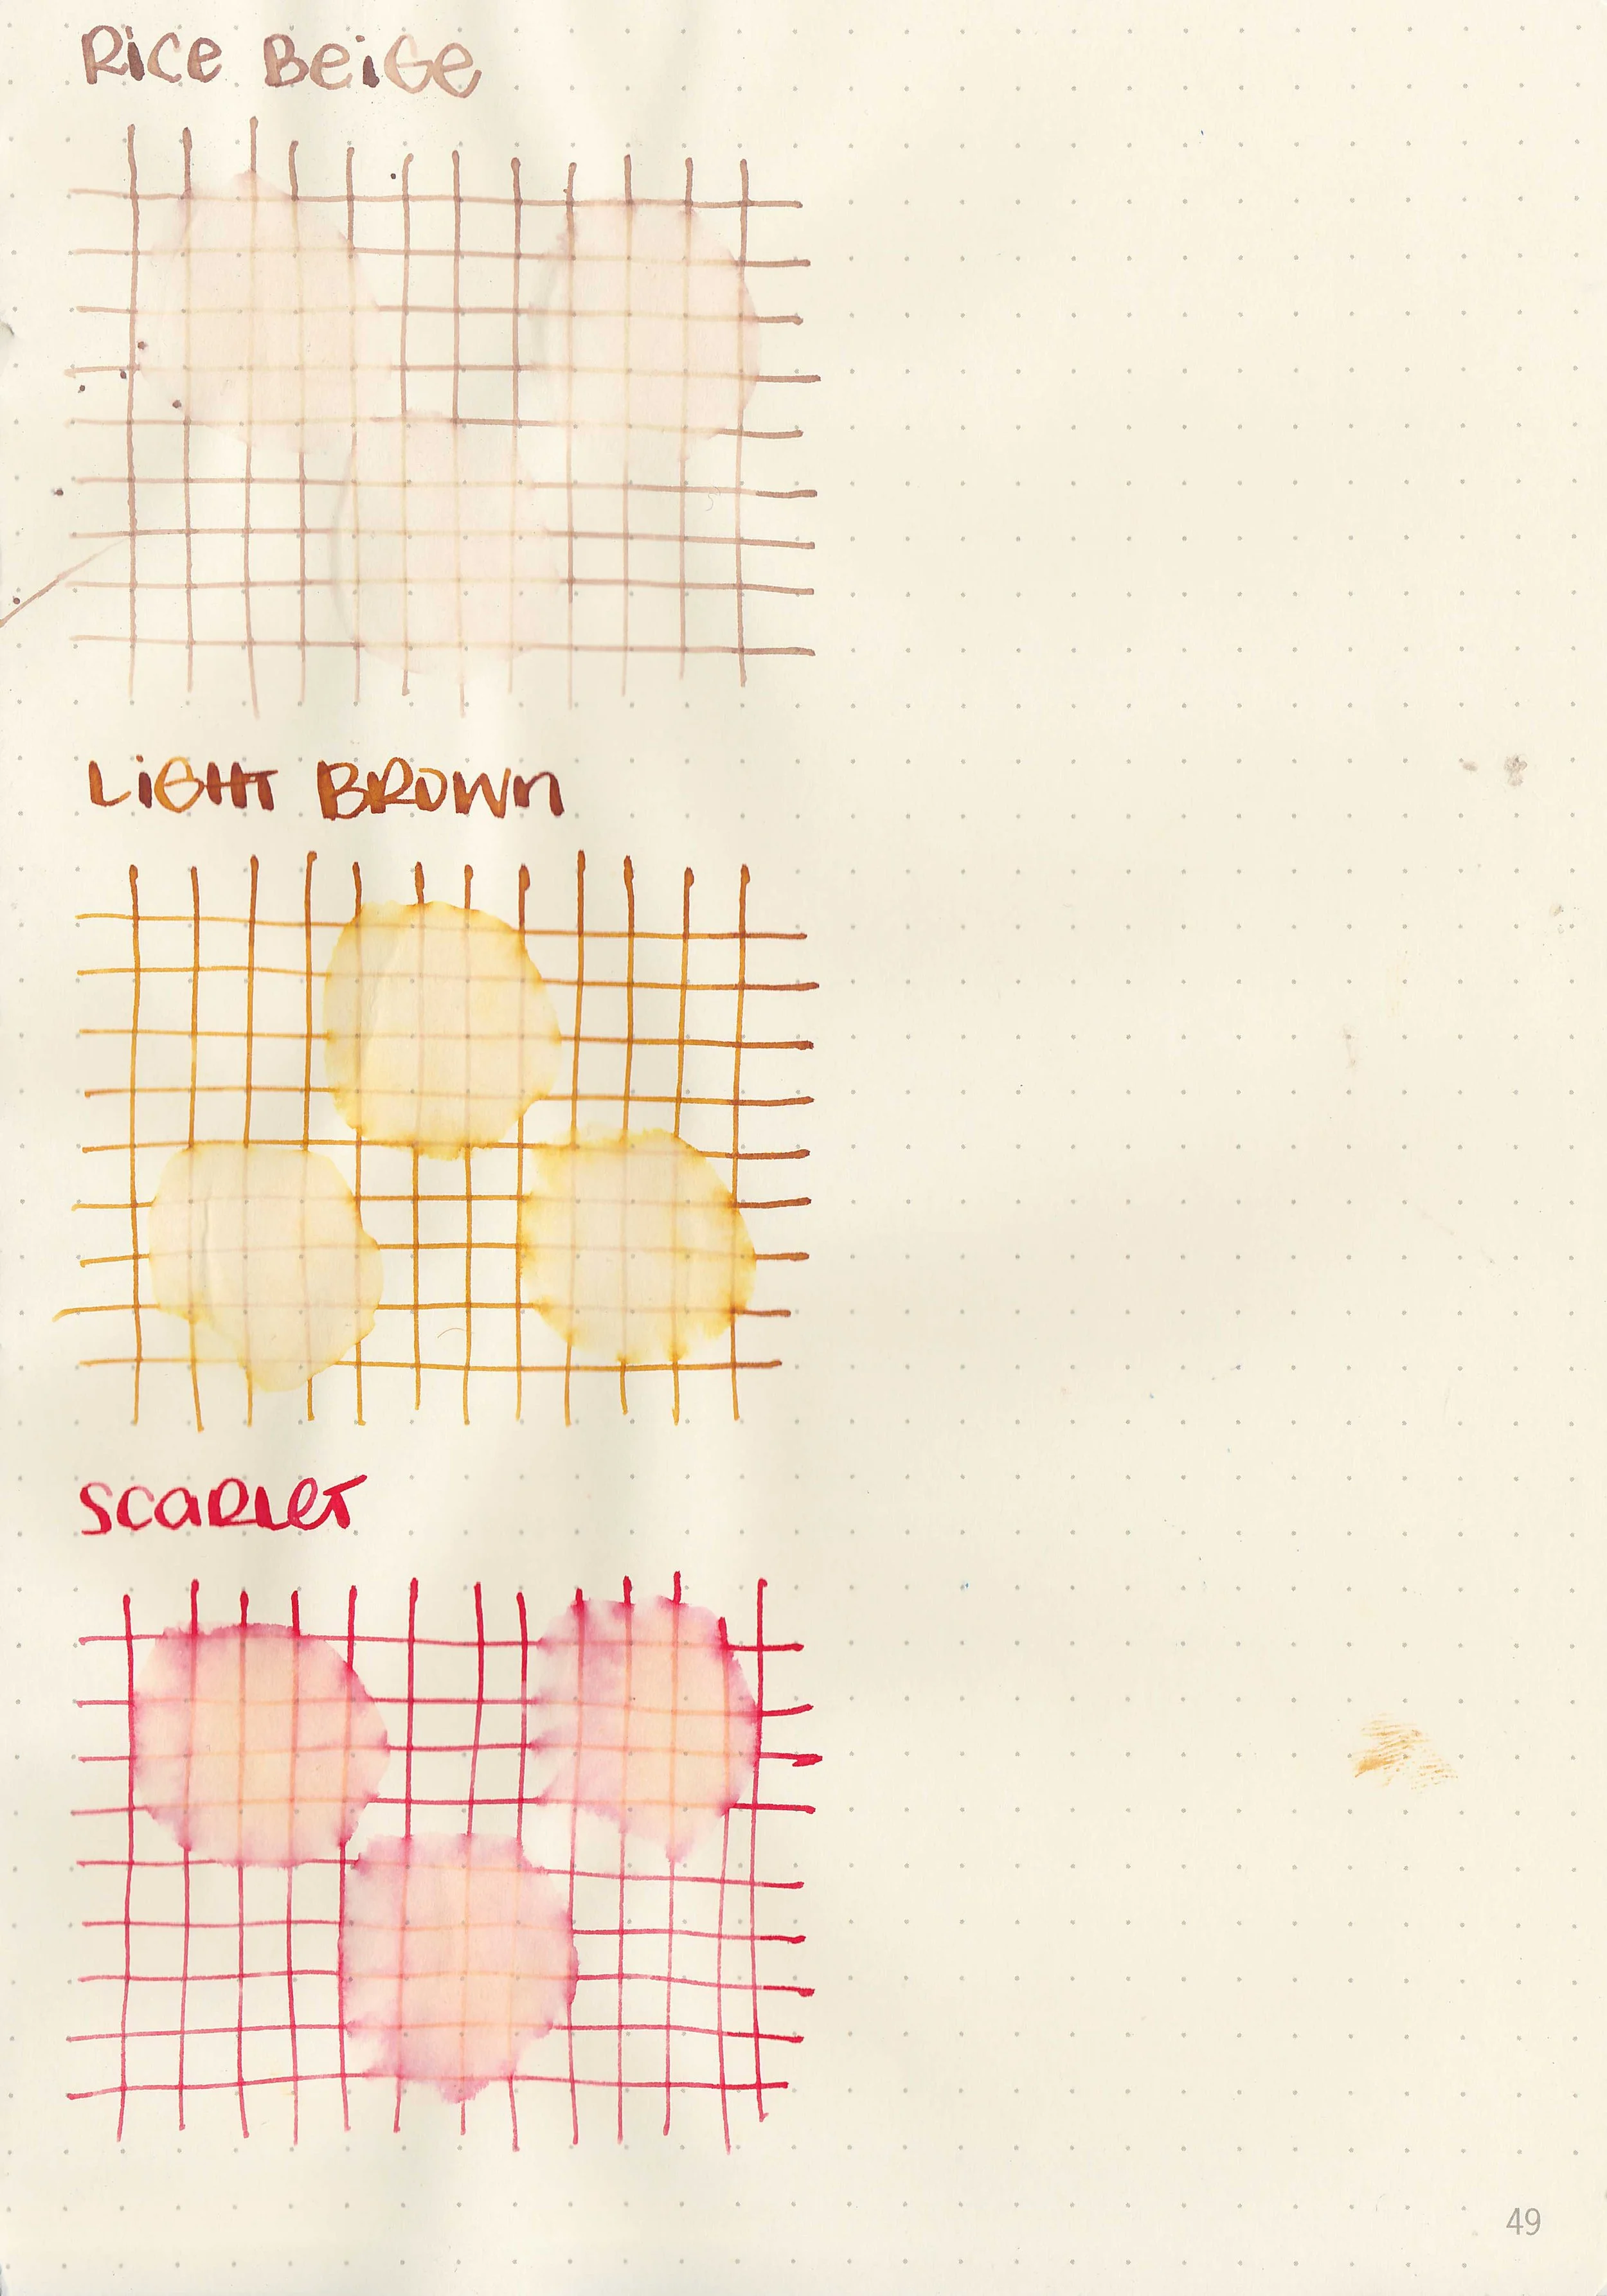 Rice Beige
Light Brown
Scarlet
49